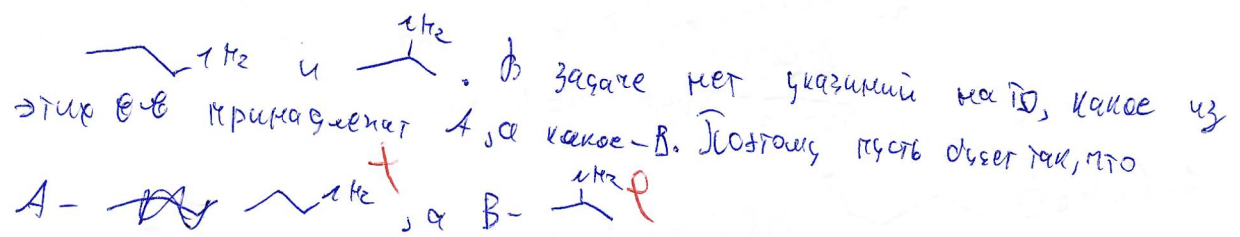 NH2 и NH2. В задаче нет указаний на то, какое из
этих в-в принадлежит A, а какое – B. Поэтому пусть будет так, что
A – NH2, а B – NH2